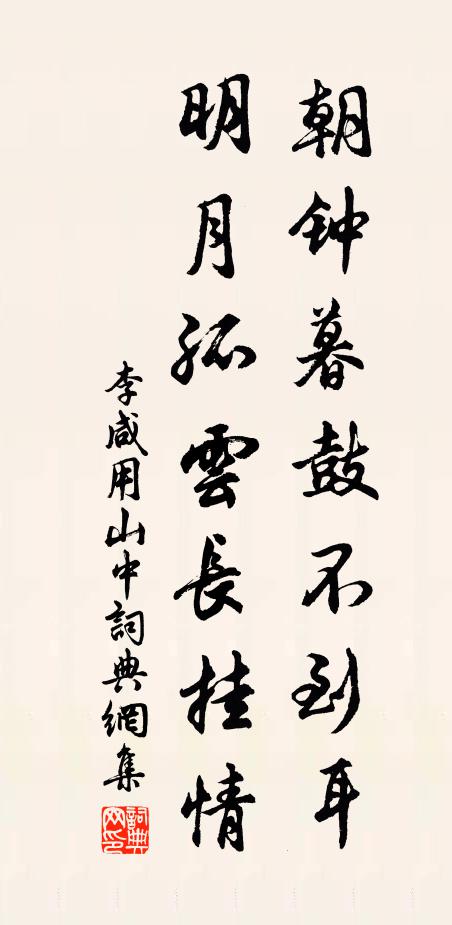 朝钟暮鼓不到耳
明月孤雲長挂情
李咸用山中詞典網集
詞典网印